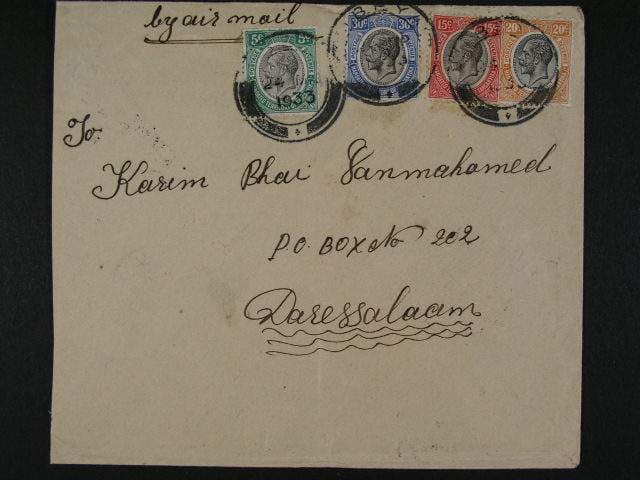 by air mail
5c 5c
30c 30c
15c 15c
20c 20c
1933
To
Karim Bhai Vanmahomed
P.O. BOX No 202
Daressalaam